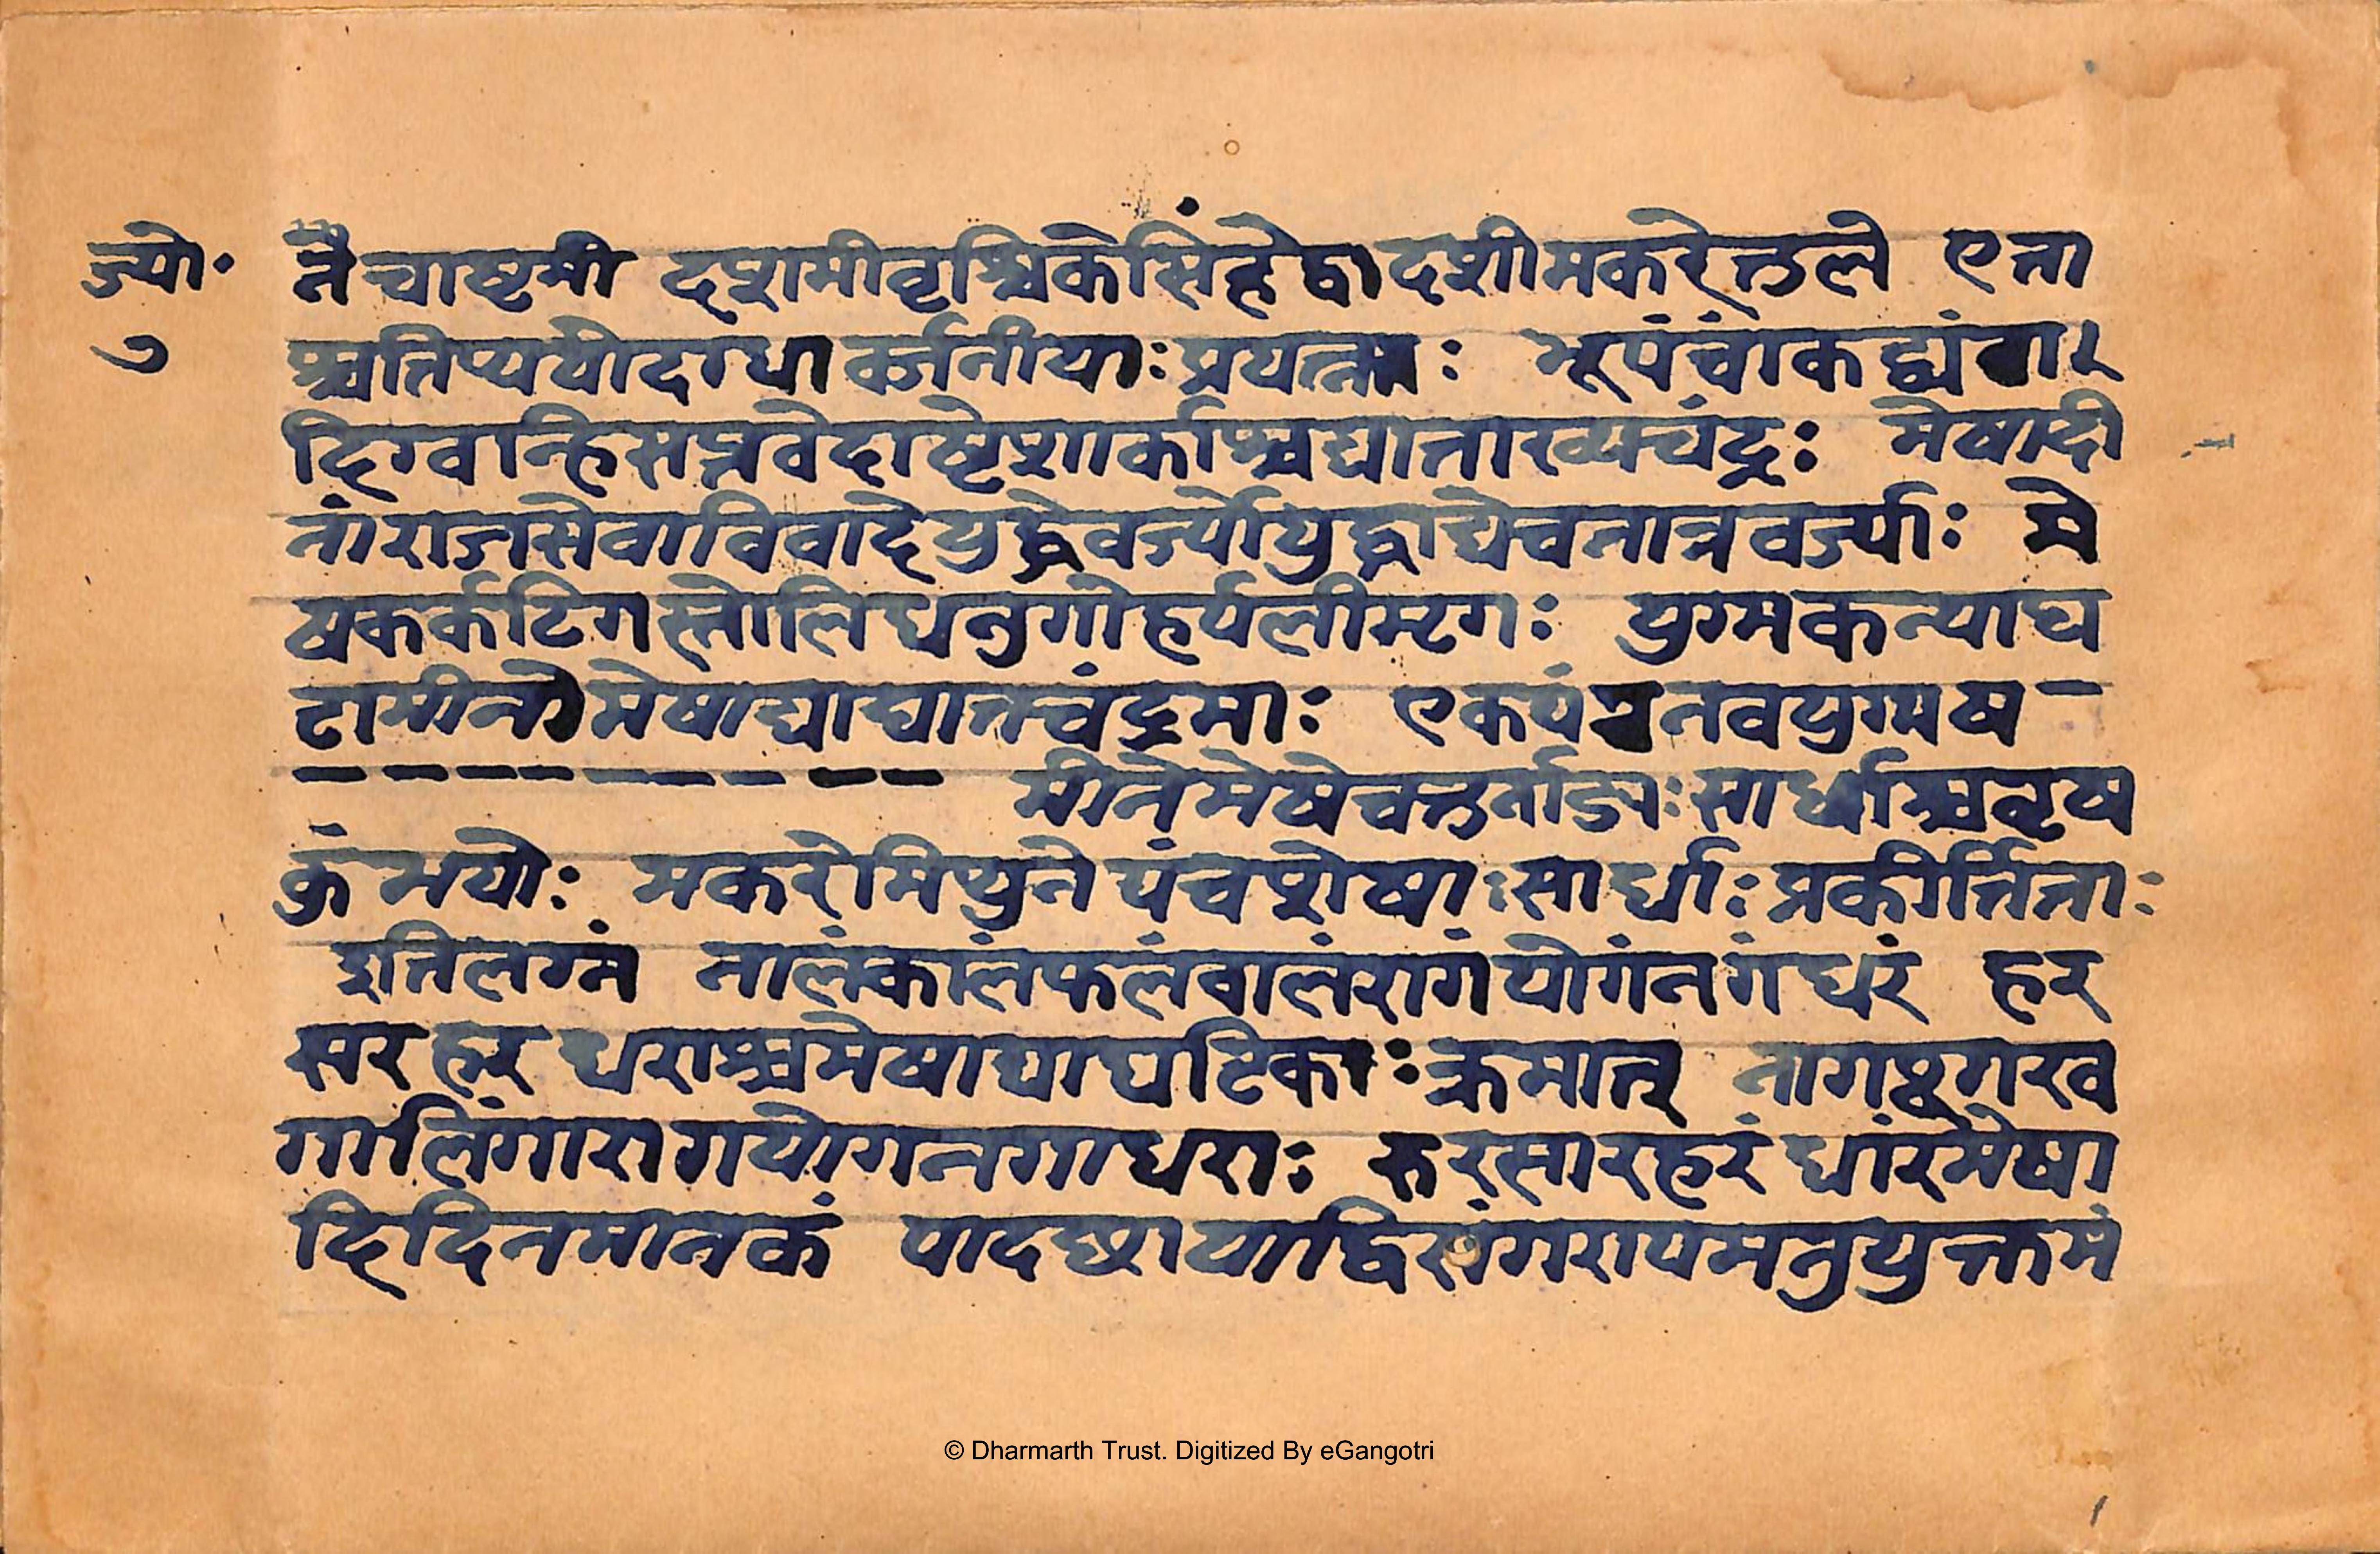 ज्यो॰
७
नैचाष्टमी दशमीवृश्चिकेसिंहेद्वादशीमकरेतुले एता
श्चतिथ्ययोदग्धा वर्जनीयाः प्रयत्नतः भूपंचांकद्व्यंगा
दिग्वन्हिसप्तवेदाष्टेशार्काश्चद्यातारव्यचंद्रः मेषादी
नांराजसेवाविवादेयुद्धेवर्ज्योयुद्धाद्येचनान्नवर्ज्याः मे
षकर्कटिगस्तोलिधनुगोहर्यलीमृगः युग्मकन्याघ
टामीनोमेषाद्याघातचंद्रमाः एकपंचनवयुग्मष
मीनेमेषेचतुर्नाड्यः सार्धाश्चवृष
कुंभयोः मकरेमिथुनेपंचशेषाः सार्धाः प्रकीर्त्तिताः
इतिलग्नं नालंकालंफलंवालंरागंयोगंनगंधरं हर
सरहरधराश्चमेषाद्याघटिकाः क्रमात् नागष्टगरव
गालिंगारागयोगनगाधराः रुरसारहरंधांरमेषा
दिदिनमानकं पादछायाद्विसंगरायमनुयुक्तमं
© Dharmarth Trust. Digitized By eGangotri